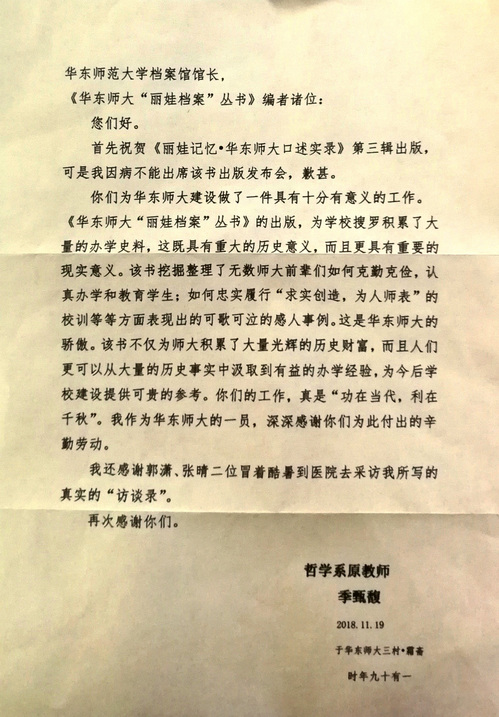 华东师范大学档案馆馆长，
《华东师大“丽娃档案”丛书》编者诸位：
您们好。
首先祝贺《丽娃记忆•华东师大口述实录》第三辑出版，
可是我因病不能出席该书出版发布会，歉甚。
你们为华东师大建设做了一件具有十分有意义的工作。
《华东师大“丽娃档案”丛书》的出版，为学校搜罗积累了大
量的办学史料，这既具有重大的历史意义，而且更具有重要的
现实意义。该书挖掘整理了无数师大前辈们如何克勤克俭，认
真办学和教育学生；如何忠实履行“求实创造，为人师表”的
校训等等方面表现出的可歌可泣的感人事例。这是华东师大的
骄傲。该书不仅为师大积累了大量光辉的历史财富，而且人们
更可以从大量的历史事实中汲取到有益的办学经验，为今后学
校建设提供可贵的参考。你们的工作，真是“功在当代，利在
千秋”。我作为华东师大的一员，深深感谢你们为此付出的辛
勤劳动。
我还感谢郭潇、张晴二位冒着酷暑到医院去采访我所写的
真实的“访谈录”。
再次感谢你们。
哲学系原教师
季甄馥
2018.11.19
于华东师大三村•霜斋
时年九十有一